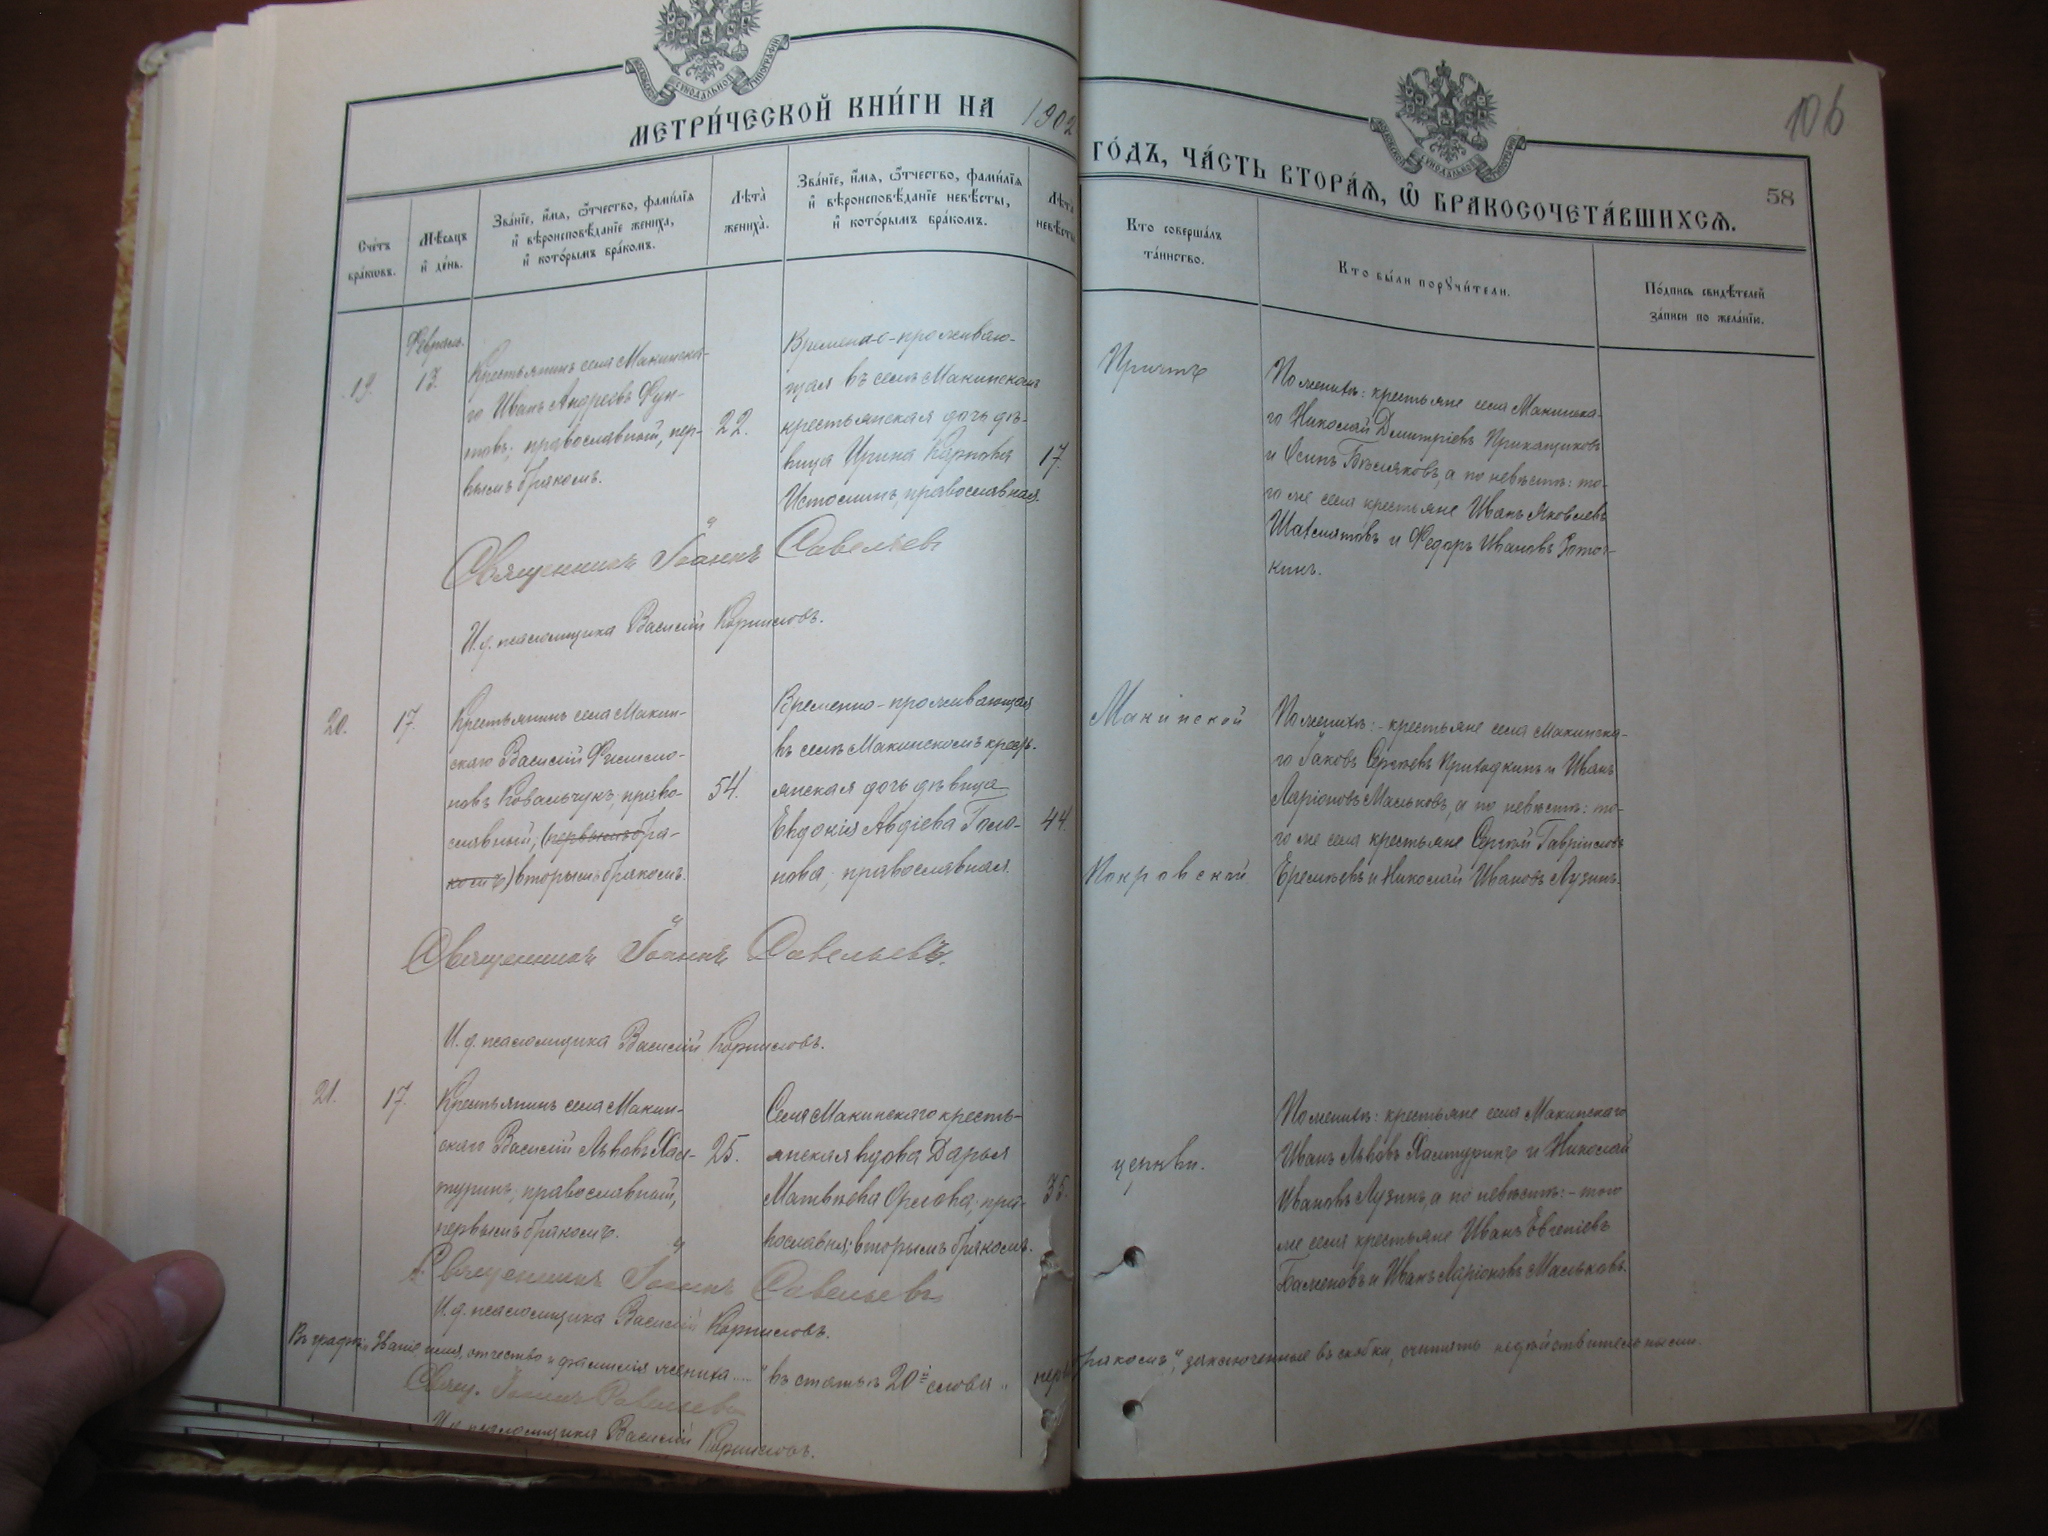 МЕТРИ́ЧЕСКОЙ КНИ́ГИ НА 1902
ГО́ДЪ, ЧА́СТЬ ВТОРА́Ѧ, Ѽ БРАКОСОЧЕТА́ВШИХСѦ.
106
58
Сче́тъ
бра́кѡвъ.
Мѣ́сѧцъ
и҆ де́нь.
Зва́нїе, и҆́мѧ, ѻ҆́тчество, фами́лїѧ
и҆ вѣроисповѣ́данїе жениха̀,
и҆ кото́рымъ бра́комъ.
Лѣта̀
жениха̀.
Зва́нїе, и҆́мѧ, ѻ҆́тчество, фами́лїѧ
и҆ вѣроисповѣ́данїе невѣ́сты,
и҆ кото́рымъ бра́комъ.
Лѣта̀
невѣ́сты
Кто соверша́лъ
та́инство.
Кто бы́ли порꙋчи́тели.
По́дпись свидѣ́телей
за́писи по жела́нїю.
19.
Февраль.
13.
Крестьянинъ села Макинска-
го Иванъ Андреевъ Фун-
товъ; православный, пер-
вымъ бракомъ.
22.
Временно-проживаю-
щая въ селѣ Макинскомъ
крестьянская дочь дѣ-
вица Ирина Карпова
Истомина, православная.
17.
Причтъ
По женихѣ: крестьяне села Макинска-
го Николай Дмитріевъ Прикащиковъ
и Осипъ Бѣляковъ, а по невѣстѣ: то-
го же села крестьяне Иванъ Яковлевъ
Шахматовъ и Федоръ Ивановъ Зото-
кинъ.
Священникъ Іоаннъ Савельевъ
И. д. псаломщика Василій Корниловъ.
20.
17.
Крестьянинъ села Макин-
скаго Василій Филимо-
новъ Ковальчукъ, право-
славный, (первымъ бра-
комъ) вторымъ бракомъ.
54.
Временно-проживающая
въ селѣ Макинскомъ кресть-
янская дочь дѣвица
Евдокія Авдіева Голо-
нова; православная.
44.
Макинской
Покровской
По женихѣ: - крестьяне села Макинска-
го Іаковъ Сергѣевъ Приходкинъ и Иванъ
Ларіоновъ Мальковъ, а по невѣстѣ: то-
го же села крестьяне Сергѣй Гавріиловъ
Еремѣевъ и Николай Ивановъ Лузинъ.
Священникъ Іоаннъ Савельевъ.
И. д. псаломщика Василій Корниловъ.
21.
17.
Крестьянинъ села Макин-
скаго Василій Львовъ Хал-
туринъ, православный,
первымъ бракомъ.
25.
Села Макинскаго кресть-
янская вдова Дарья
Матвѣева Орлова; пра-
вославня; вторымъ бракомъ.
35.
церкви.
По женихѣ: крестьяне села Макинскаго
Иванъ Львовъ Халтуринъ и Николай
Ивановъ Лузинъ, а по невѣстѣ: - того
же села крестьяне Иванъ Евгеніевъ
Баженовъ и Иванъ Ларіоновъ Мальковъ.
Священникъ Іоаннъ Савельевъ
И. д. псаломщика Василій Корниловъ.
Въ графѣ „Званіе имя, отчество и фамилія жениха....“ въ статьѣ 20й слова „первымъ бракомъ“, заключенные въ скобки, считать недѣйствительными.
Свящ. Іоаннъ Савельевъ
И. д. псаломщика Василій Корниловъ.